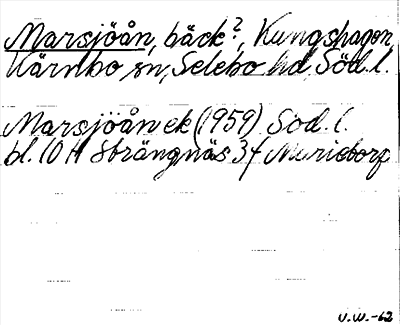 Marsjöån, bäck?, Kungshagen,
Kärnbo sn, Selebo hd, Söd. l.
Marsjöån ek (1959) Söd. l.
bl. 10 H Strängnäs 3 f Marietorp
V.W.-62